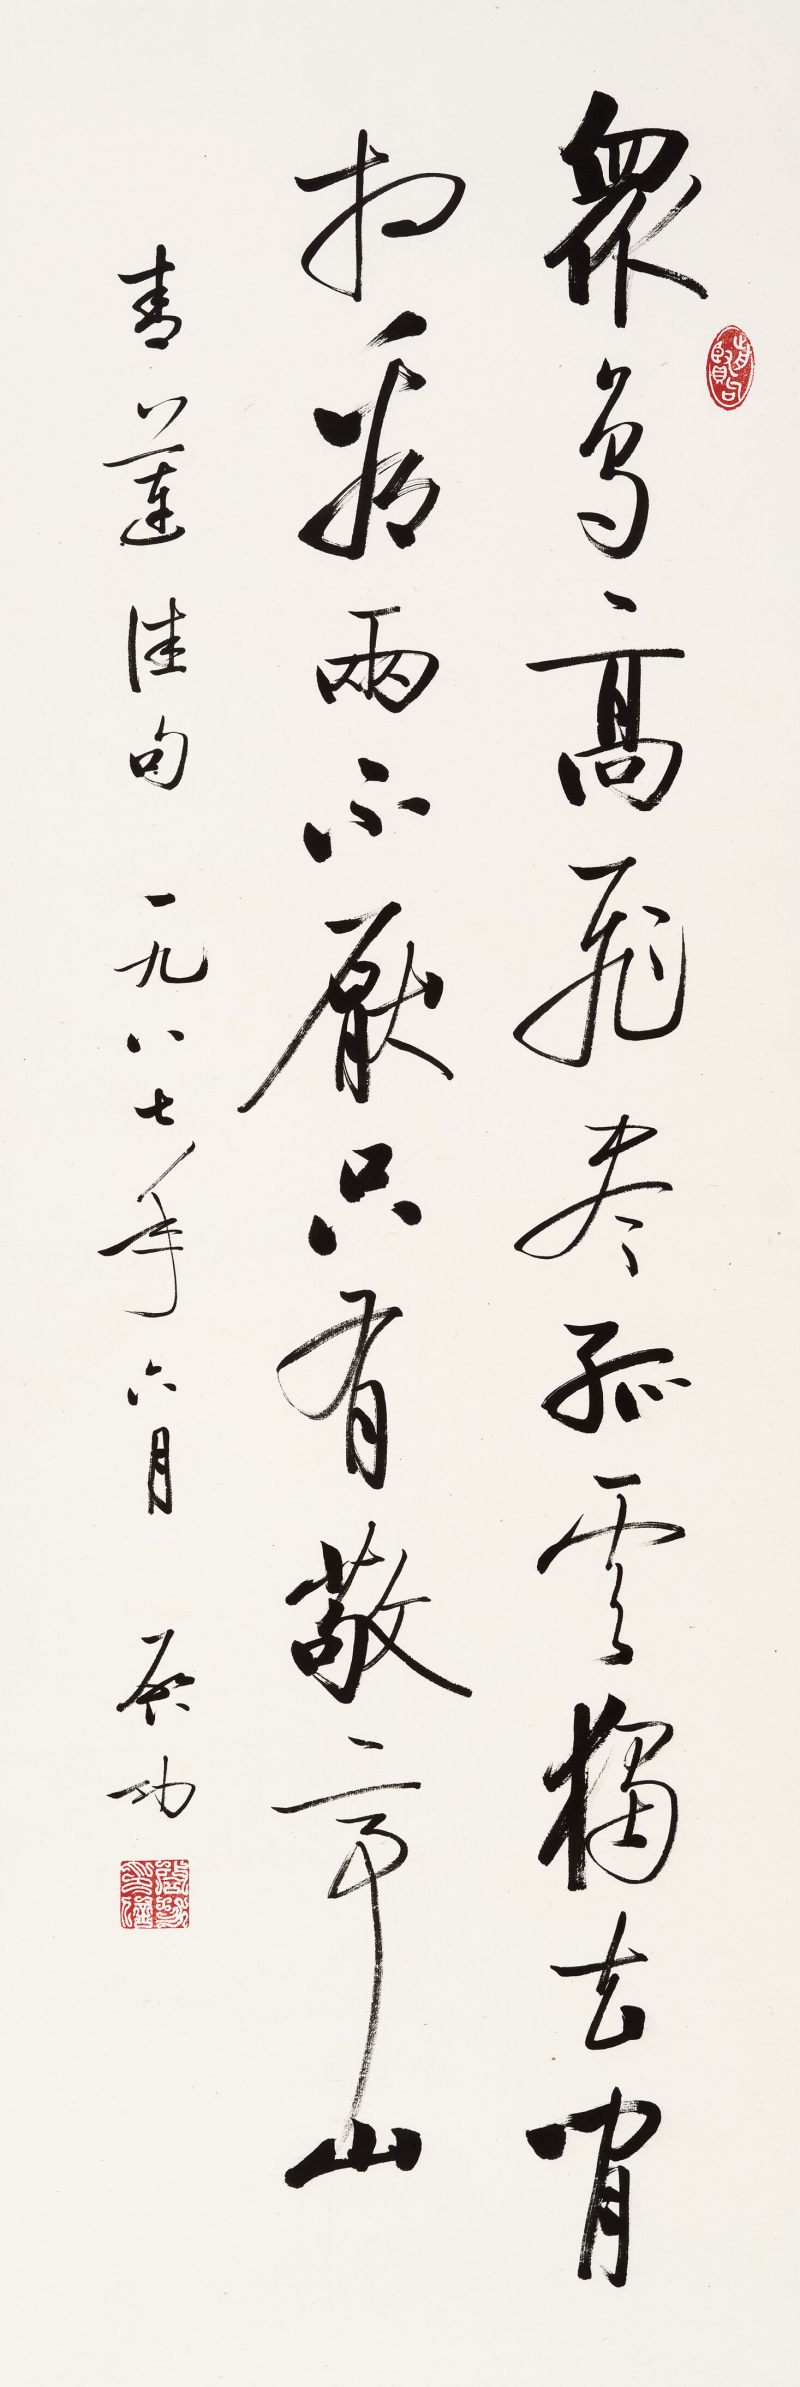 衆鳥高飛盡孤雲獨去閒
相看兩不厭只有敬亭山
青蓮佳句 一九八七年六月 启功